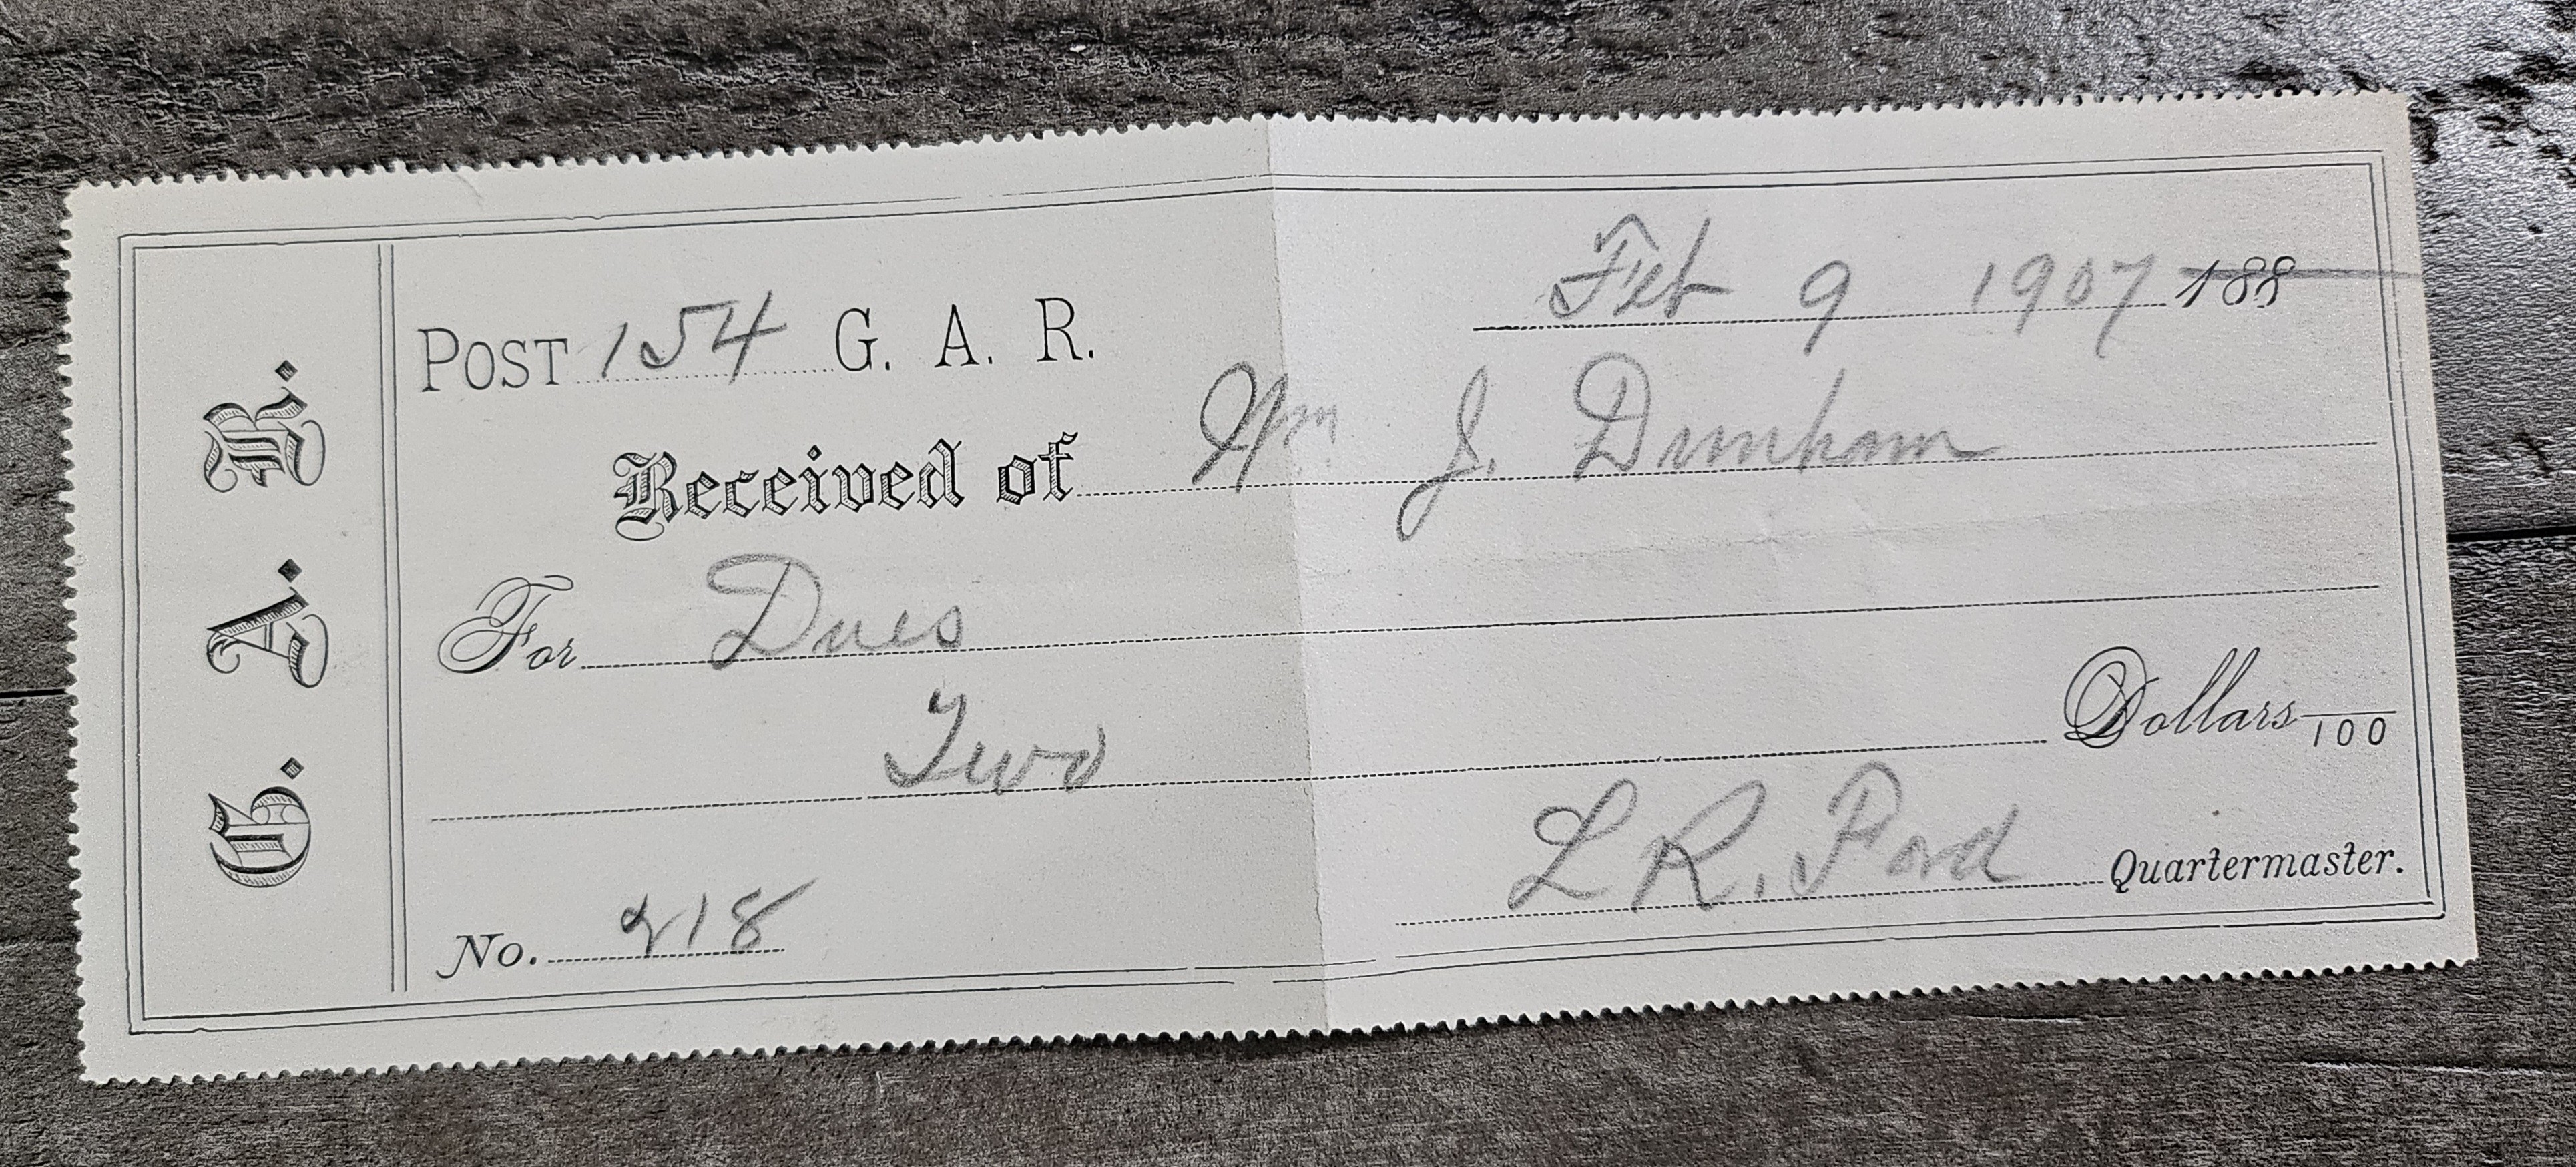 G. A. R.
Feb 9 1907 188
POST 154 G. A. R.
Received of Wm J. Dunham
For Dues
Two Dollars /100
L R. Ford Quartermaster.
No. 218